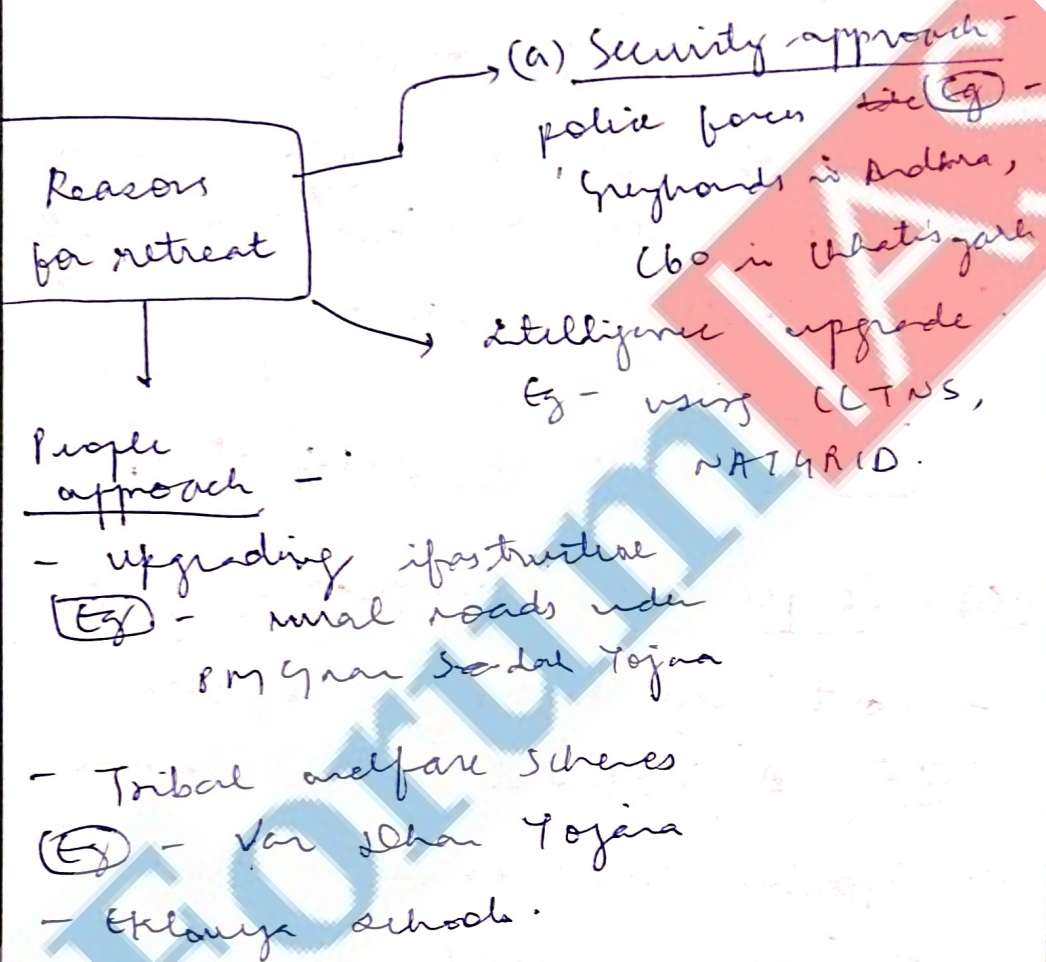 Reasons
for retreat
(a) Security approach -
police forces Eg -
'Greyhounds in Andhra,
C60 in Chhatisgarh
intelligence upgrade.
Eg - using CCTNS,
NATGRID.
People
approach -
- upgrading ifrastructure
Eg - rural roads under
PM Gram Sadak Yojna
- Tribal welfare schemes
Eg - Van Dhan Yojana
- Eklavya schools.
Forum IAS